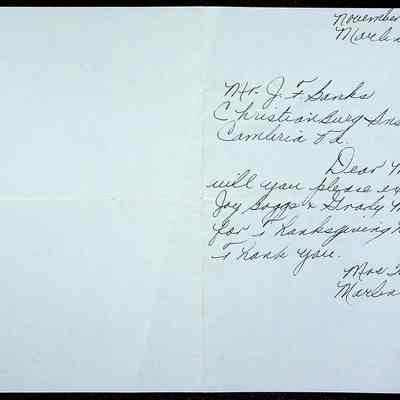 November
Marlin
Mr. J. F. Banks
Christianburg Ins
Cambria Va.
Dear M
will you please ex
Joy Boggs & Grady M
for Thanksgiving
Thank you.
Mrs
Marlin